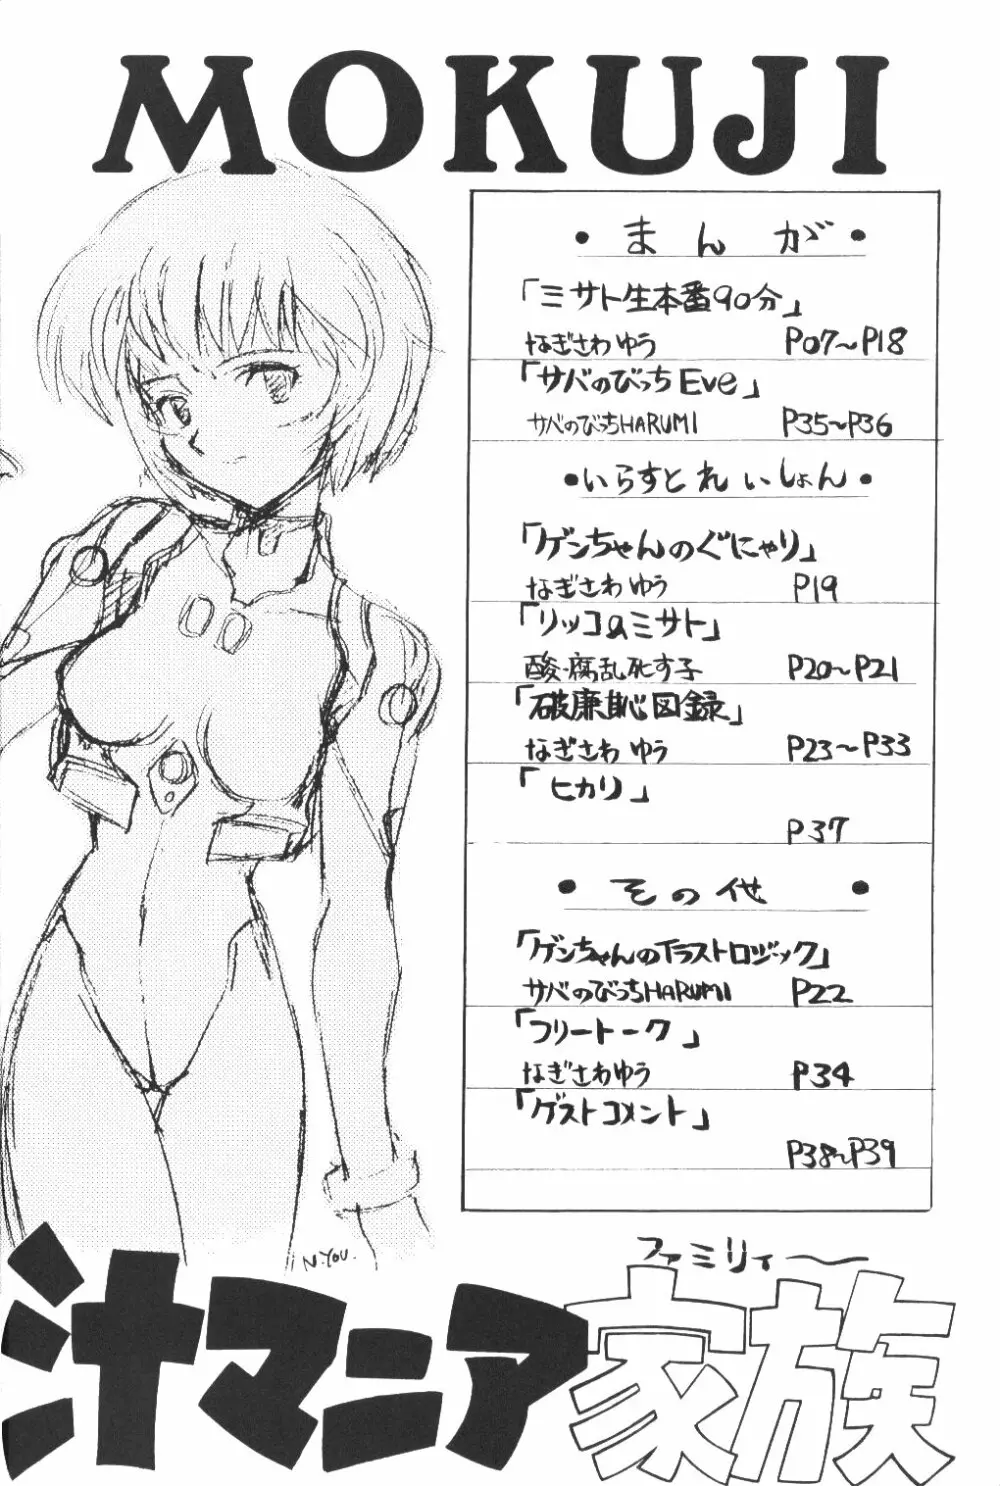 MOKUJI
・まんが・
「ミサト生本番90分」
なぎさわゆう P07〜P18
「サバのびっちEve」
サバのびっちHARUMI P35〜P36
・いらすとれいしょん・
「ゲンちゃんのぐにゃり」
なぎさわゆう P19
「リツコaミサト」
酸・腐乱死す子 P20〜P21
「破廉恥図録」
なぎさわゆう P23〜P33
「ヒカリ」
P37
・その他・
「ゲンちゃんのイラストロジック」
サバのびっちHARUMI P22
「フリートーク」
なぎさわゆう P34
「ゲストコメント」
P38〜P39
N.YOU.
ファミリィー
汁マニア家族